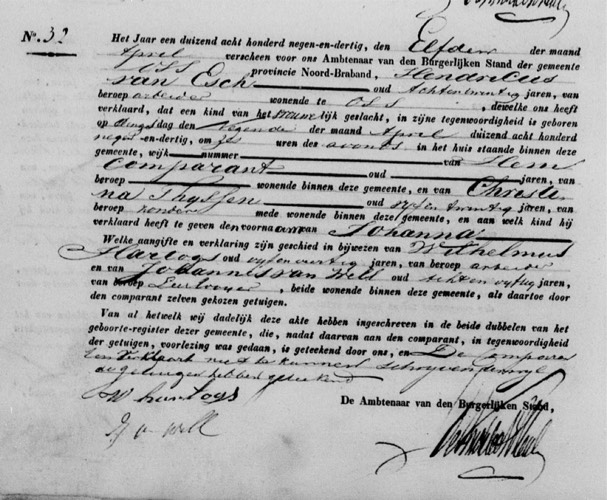 No. 32
Het Jaar een duizend acht honderd negen-en-dertig, den Elfden der maand
April verscheen voor ons Ambtenaar van den Burgerlijken Stand der gemeente
Oss provincie Noord-Braband, Hendricus
van Esch oud Achtentwintig jaren, van
beroep arbeider wonende te Oss, dewelke ons heeft
verklaard, dat een kind van het vrouwelijk geslacht, in zijne tegenwoordigheid is geboren
op dingsdag den Negende der maand April duizend acht honderd
negen-en-dertig, om uren des avonds in het huis staande binnen deze
gemeente, wijk nummer van Hem
Comparant oud jaren, van
beroep wonende binnen deze gemeente, en van Christi
na Thyssen oud vyfentwintig jaren, van
beroep zonder mede wonende binnen deze gemeente, en aan welk kind hij
verklaard heeft te geven den voornaam van Johanna
Welke aangifte en verklaring zijn geschied in bijwezen van Wilhelmus
Hartogs oud vyfenveertig jaren, van beroep arbeider
en van Johannis van Well oud achtenvyftig jaren,
van beroep Leerlooyer, beide wonende binnen deze gemeente, als daartoe door
den comparant zelven gekozen getuigen.
Van al hetwelk wij dadelijk deze akte hebben ingeschreven in de beide dubbelen van het
geboorte-register dezer gemeente, die, nadat daarvan aan den comparant, in tegenwoordigheid
der getuigen, voorlezing was gedaan, is geteekend door ons, en De Compara
verklaard niet te kunnen schryven terwyl
de getuigen hebben geteekend
W hartogs
De Ambtenaar van den Burgerlijken Stand,
J v well